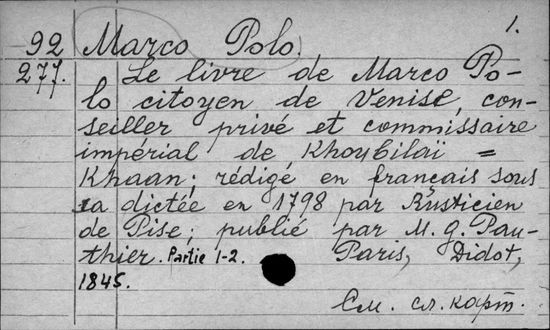 1.
92 Marco Polo.
277. Le livre de Marco Po-
lo citoyen de Venise, con-
seiller privé et commissaire
impérial de Khoubilaï =
Khaan; rédigé en français sous
sa dictée en 1798 par Rusticien
de Pise; publié par M. G. Pau-
thier. Partie 1-2. Paris, Didot,
1845.
См. сл. карт.